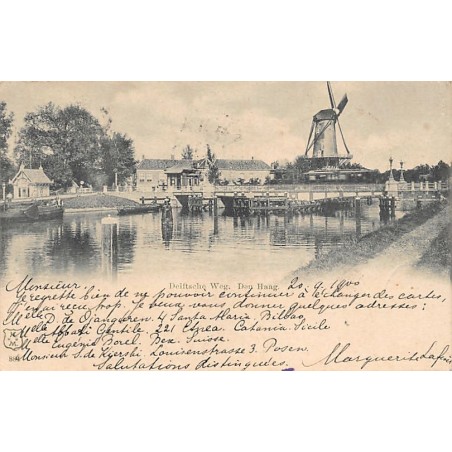 Delftsche Weg. Den Haag.
20.4.1900
Monsieur
regrette bien de ne pouvoir continuer à échanger des cartes,
j'en ai reçu trop. Je veux vous donner quelques adresses:
M. D. de 4 Santa Maria, Bilbao,
Melle Gentile. 221 Etnea. Catania. Sicile
Melle Eugénie Borel. Bex. Suisse.
Monsieur S. de Louisenstrasse 3. Posen.
Salutations distinguées.
Marguerite